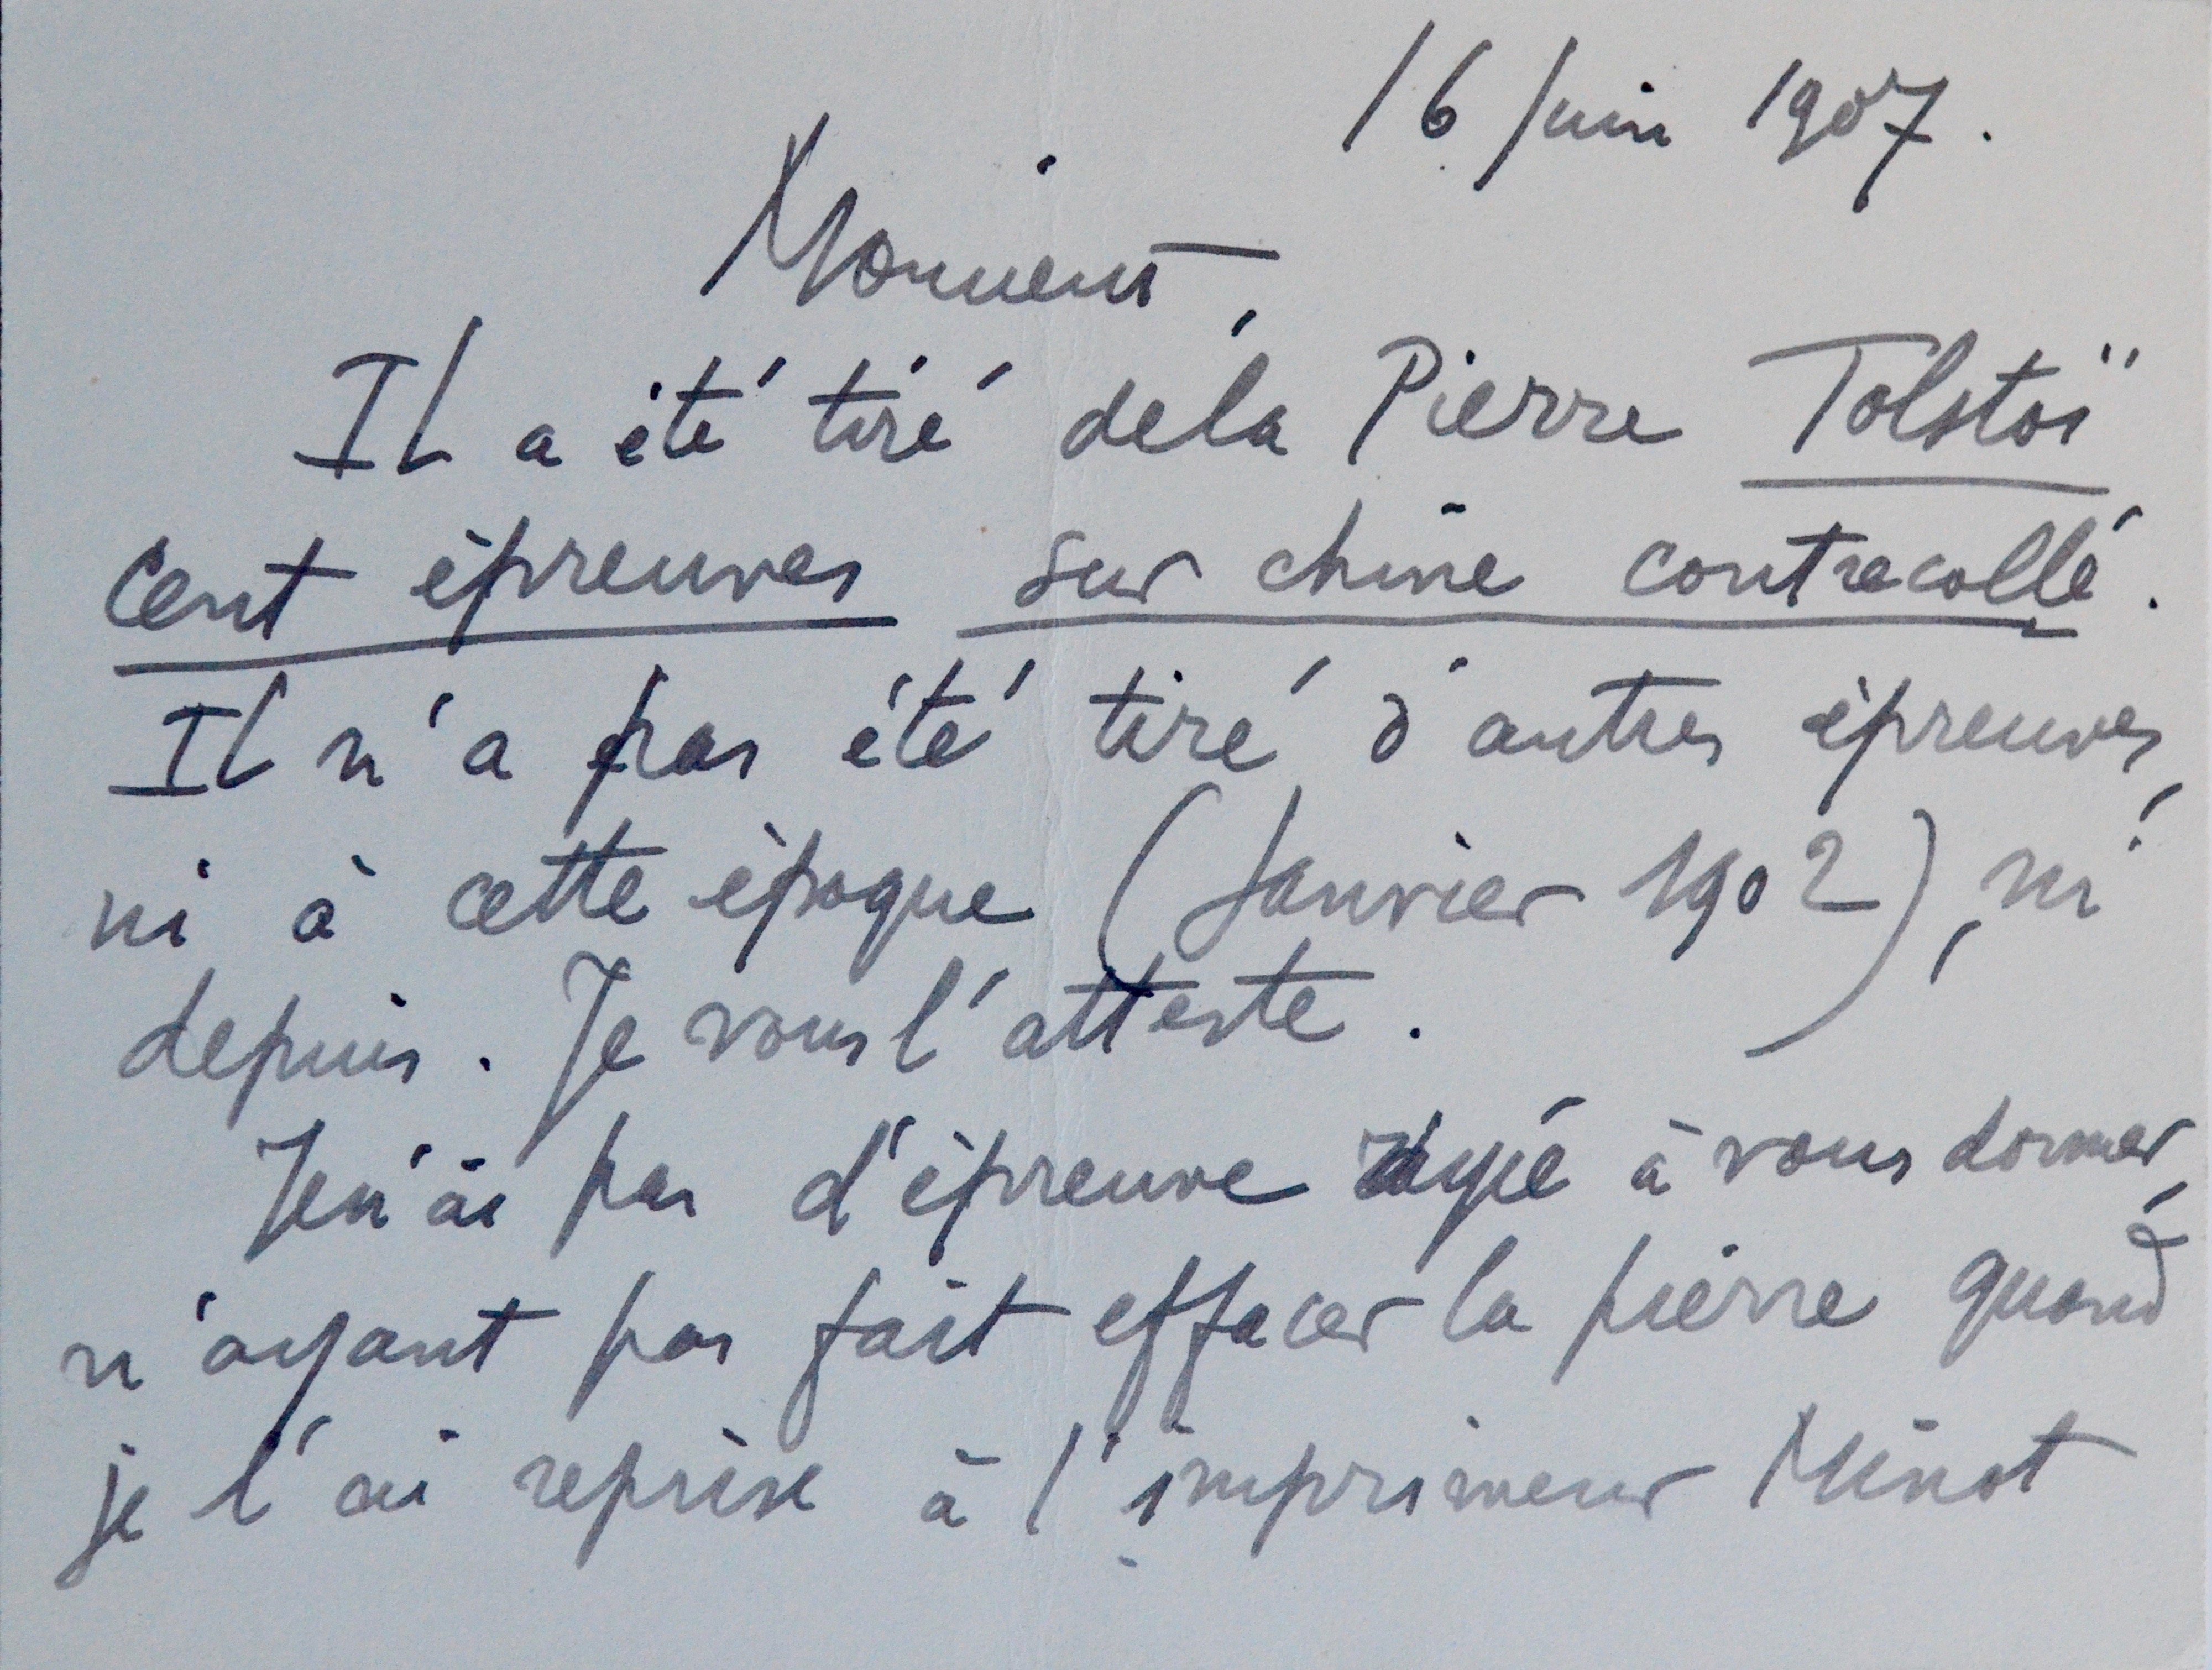 16 Juin 1907.
Monsieur,
Il a été tiré de la Pierre Tolstoï
cent épreuves sur chine contrecollé.
Il n'a pas été tiré d'autres épreuves,
ni à cette époque (Janvier 1902), ni
depuis. Je vous l'atteste.
Je n'ai pas d'épreuve à vous donner,
n'ayant pas fait effacer la pierre quand
je l'ai reprise à l'imprimeur Minot